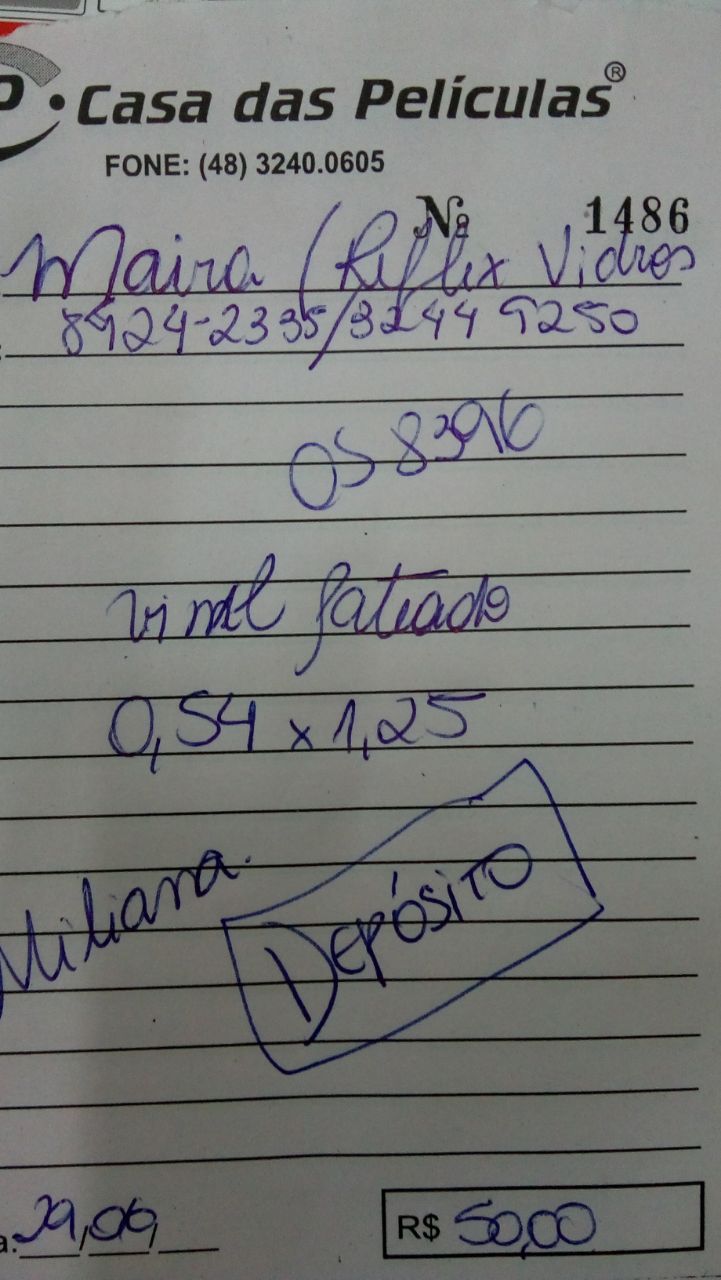 • Casa das Películas®
FONE: (48) 3240.0605
Nº 1486
Maira / Reflex Vidros
8424-2335/3244 9250
OS 8396
vinil fatiado
0,54 x 1,25
DEPÓSITO
a: 29,06,
R$ 50,00